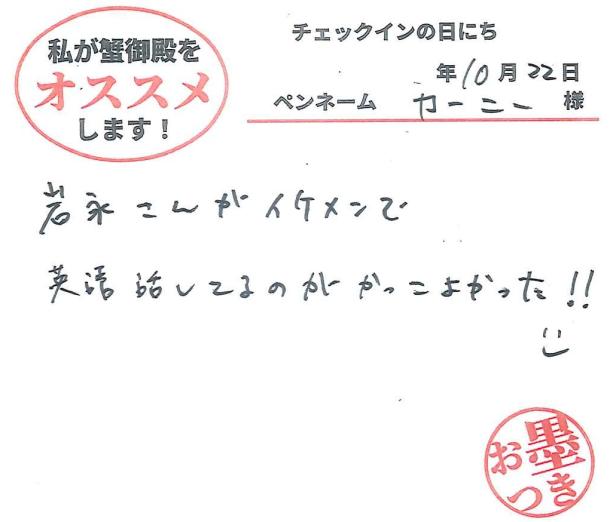 私が蟹御殿を
オススメ
します！
チェックインの日にち
年10月22日
ペンネーム カーニー 様
岩永さんがイケメンで
英語話してるのがかっこよかった!!
お墨
つき